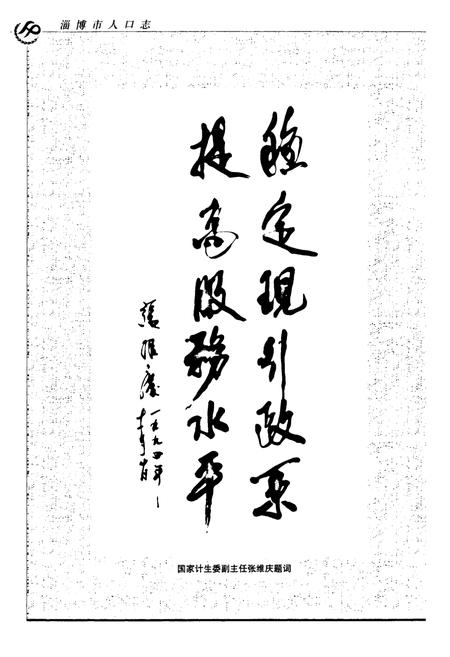 淄博市人口志
稳定现行政策
提高服务水平
张维庆 一九九四年
国家计生委副主任张维庆题词